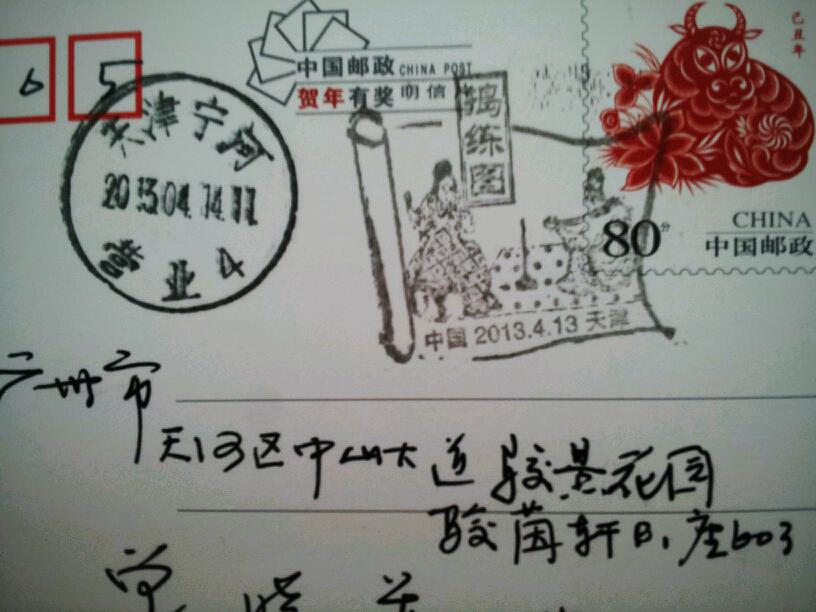 6 5
中国邮政 CHINA POST
贺年有奖 明信
己丑年
天津宁河
2013.04.14.11
营业4
捣练图
中国 2013.4.13 天津
80分
CHINA
中国邮政
广州市
天河区中山大道骏景花园
骏茵轩B1座603